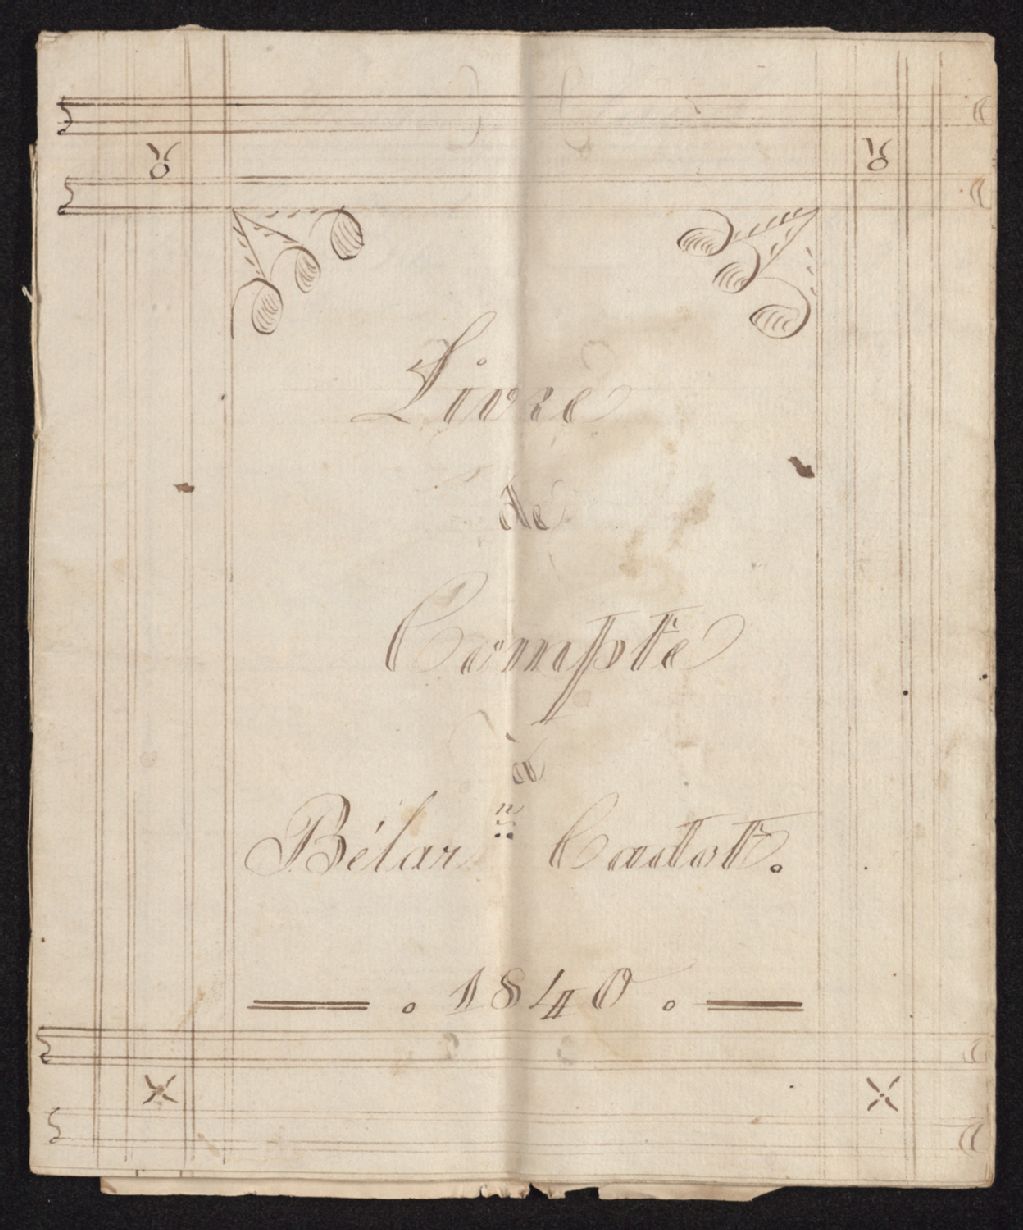 Livre
de
Compte
à
Bélar.ⁿ Cadot.
1840